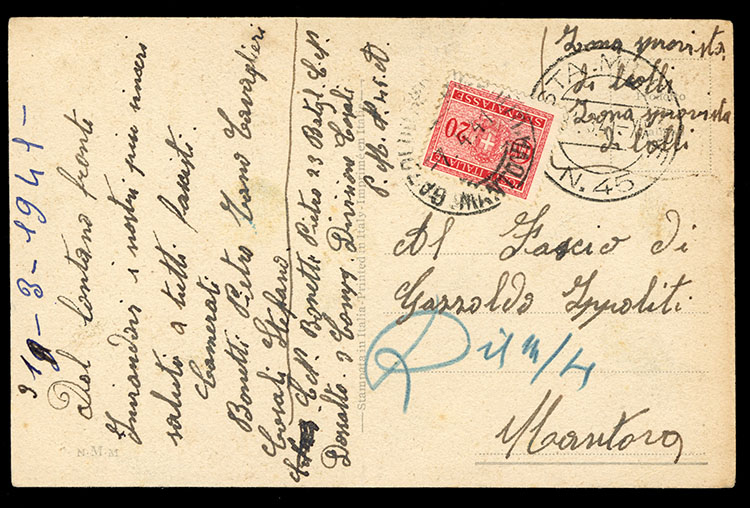 319-3-1941-
Dal lontano fronte
Inviandovi i nostri più sinceri
saluti a tutti fascisti
Camerati
Bonetti Pietro
Cosali Stefano
C.N. Bonetti Pietro 23 Batgl. C.N.
Dossatto. 3 Comp Divisione
P. M. N. 45. A
N.M.M
Stampata in Italia - Printed in Italy - Imprimé en Italie
Zona sprovista
di bolli
Zona sprovista
di bolli
POSTA MILITARE
N. 45
SEGNATASSE
20
POSTE ITALIANE
Al Fascio di
Gazzoldo Ippoliti
Mantova